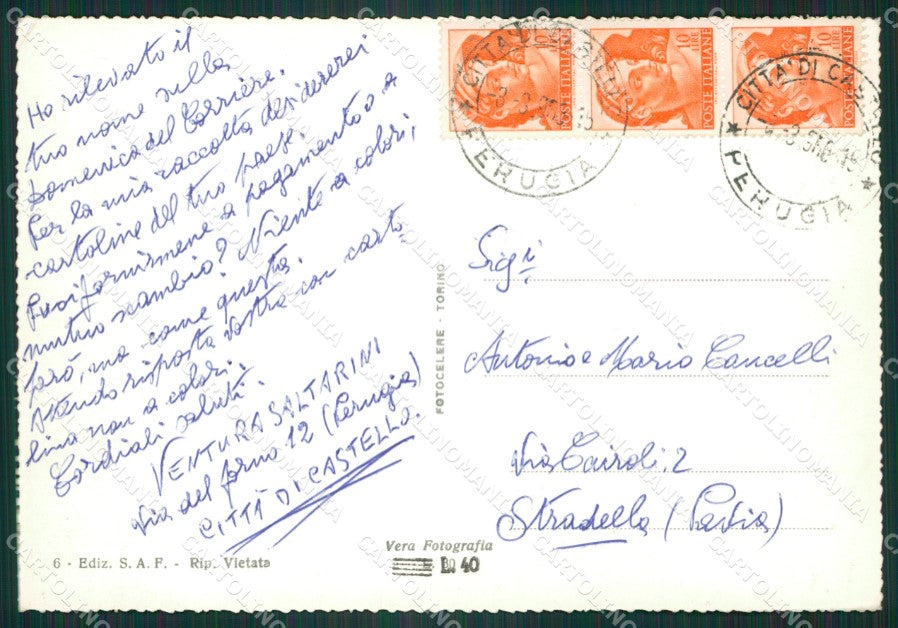 Ho rilevato il
tuo nome sulla
Domenica del Corriere.
Per la mia raccolta desidererei
cartoline del tuo paese.
Puoi fornirmene a pagamento o a
mutuo scambio? Niente a colori,
però, ma come questa.
Attendo risposta vostra con carto-
lina non a colori.
Cordiali saluti.
VENTURA SALTARINI
Via del forno 12 (Perugia)
CITTÀ DI CASTELLO.
6 - Ediz. S. A. F. - Rip. Vietata
Vera Fotografia
L. 40
FOTOCELERE - TORINO
10 LIRE
POSTE ITALIANE
10 LIRE
POSTE ITALIANE
10 LIRE
POSTE ITALIANE
CITTA' DI CASTELLO
PERUGIA
CITTA' DI CASTELLO
PERUGIA
Sigi
Antonio e Mario Cancelli
Via Cairoli 2
Stradella (Pavia)
CARTOLINOMANIA